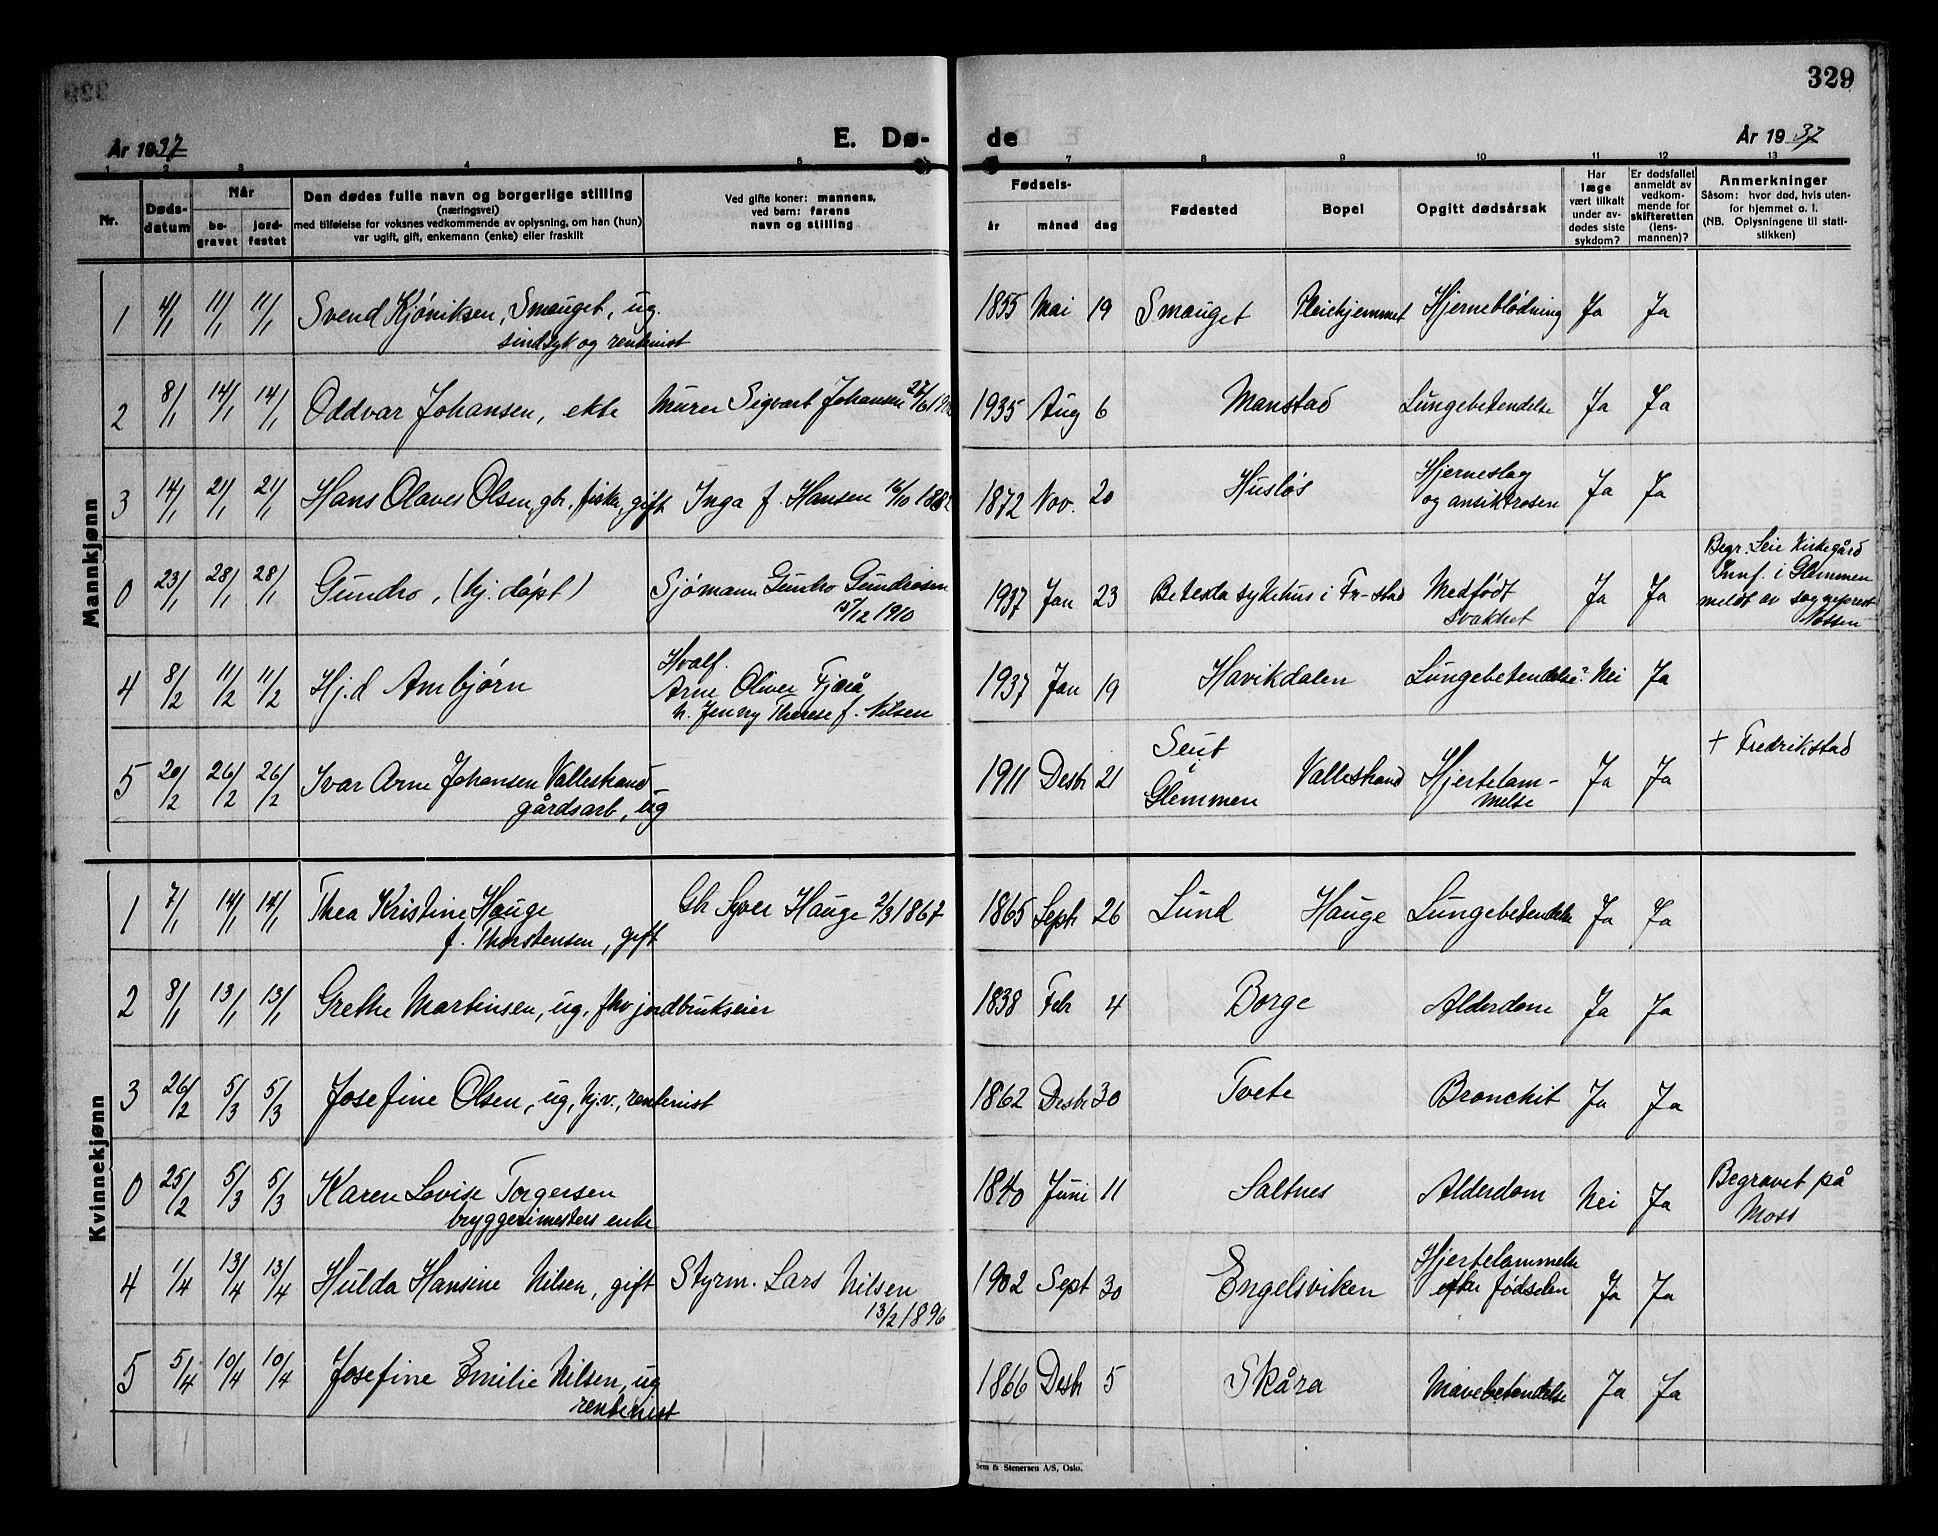 329
År 1937 E. Dø- de År 1937
1 2 3 4 5 7 8 9 10 11 12 13
Nr. Døds-datum Når be-gravet jord-festet Den dødes fulle navn og borgerlige stilling (næringsvei) med tilføielse for voksnes vedkommende av oplysning, om han (hun) var ugift, gift, enkemann (enke) eller fraskilt Ved gifte koner: mannens, ved barn: farens navn og stilling Fødsels- år måned dag Fødested Bopel Opgitt dødsårsak Har læge vært tilkalt under av-dødes siste sykdom? Er dødsfallet anmeldt av vedkom-mende for skifteretten (lens-mannen)? Anmerkninger Såsom: hvor død, hvis uten-for hjemmet o. l. (NB. Oplysningene til stati-stikken)
Mannkjønn
1 4/1 11/1 11/1 Svend Kjöniksen, Smauget, ug. 1855 Mai 19 Smauget Pleiehjemmet Hjerneblödning Ja Ja
sindsyk og rentenist
2 8/1 14/1 14/1 Oddvar Johansen, ekte Murer Sigvart Johansen 27/6 1935 Aug 6 Manstad Lungebetendelse Ja Ja
3 14/1 21/1 21/1 Hans Olaves Olsen, gbr. fisker, gift Inga f. Hansen 16/10 1882 1872 Nov. 20 Huslös Hjerneslag Ja Ja
og ansiktrosen
0 23/1 28/1 28/1 Gundro, (hj. döpt) Sjömann Gundro Gundrosen 1937 Jan 23 Betesda sykehus i Fr-stad Medfödt Ja Ja Begr. Leie Kirkegård
15/12 1910 svakhet Innf. i Glemmen
meldt av sogneprest
4 8/2 11/2 11/2 Hj.d Arnbjørn Hvalf. 1937 Jan 19 Havikdalen Lungebetendelse? Nei Ja
Arne Oliver Fjærå
h. Jenny Therese f. Nilsen
5 20/2 26/2 26/2 Ivar Arne Johansen Vallestrand 1911 Desbr 21 Seut Vallestrand Hjertelam- Ja Ja + Fredrikstad
gårdsarb, ug Glemmen melse
Kvinnekjønn
1 7/1 14/1 14/1 Thea Kristine Hauge Gbr Syver Hauge 2/3 1867 1865 Septr 26 Lund Hauge Lungebetendelse Ja Ja
f. Thorstensen, gift
2 8/1 13/1 13/1 Grethe Martinsen, ug, fhv jordbrukseier 1838 Febr 4 Borge Alderdom Ja Ja
3 26/2 5/3 5/3 Josefine Olsen, ug, hj.v., rentenist 1862 Desbr 30 Tvete Bronchit Ja Ja
0 25/2 5/3 5/3 Karen Lovise Torgersen 1840 Juni 11 Saltnes Alderdom Nei Ja Begravet på
bryggerimesters enke Moss
4 1/4 13/4 13/4 Hulda Hansine Nilsen, gift Styrm. Lars Nilsen 1902 Sept 30 Engelsviken Hjertelammelse Ja Ja
13/2 1896 efter fødselen
5 5/4 10/4 10/4 Josefine Emilie Nilsen, ug 1866 Desbr 5 Skåra Mavebetendelse Ja Ja
rentenist
Sem & Stenersen A/S, Oslo.